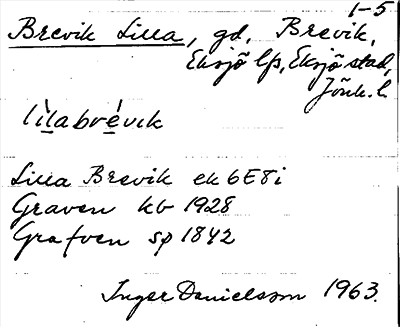 1-5
Brevik Lilla, gd, Brevik,
Eksjö lfs, Eksjö stad,
Jönk. l.
lìlabrévɩk
Lilla Brevik ek 6E8i
Graven kb 1928
Grafven sp 1842
Inger Danielsson 1963.